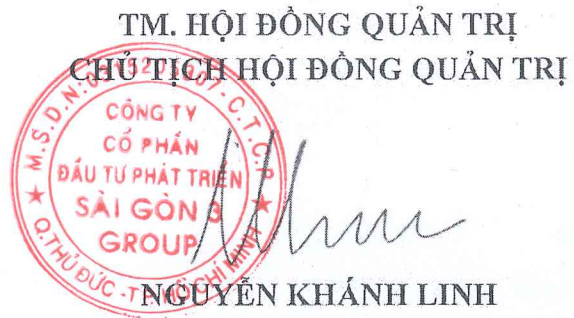 TM. HỘI ĐỒNG QUẢN TRỊ
CHỦ TỊCH HỘI ĐỒNG QUẢN TRỊ
CÔNG TY
CỔ PHẦN
ĐẦU TƯ PHÁT TRIỂN
SÀI GÒN 3
GROUP
Q.THỦ ĐỨC - T.P HỒ CHÍ MINH
NGUYỄN KHÁNH LINH